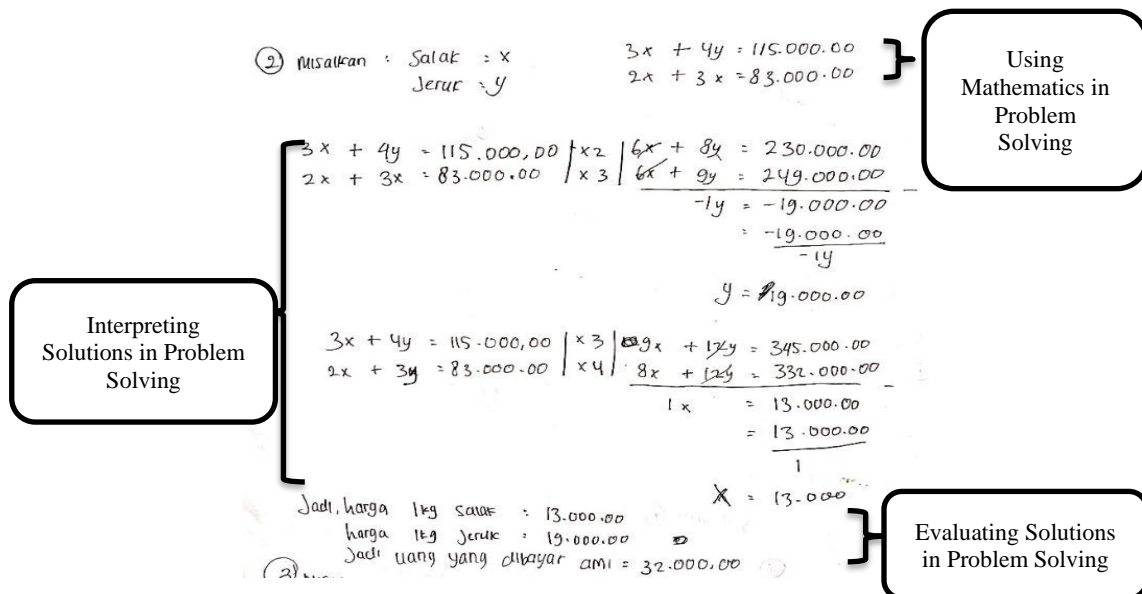 ② Misalkan : Salak : x 3x + 4y = 115.000.00
Jeruk : y 2x + 3x = 83.000.00
Using
Mathematics in
Problem
Solving
3x + 4y = 115.000,00 | x2 | 6x + 8y = 230.000.00
2x + 3x = 83.000.00 | x 3 | 6x + 9y = 249.000.00 -
-1y = -19.000.00
= -19.000.00
-1y
y = 19.000.00
Interpreting
Solutions in Problem
Solving
3x + 4y = 115.000,00 | x 3 | 9x + 12y = 345.000.00
2x + 3y = 83.000.00 | x 4 | 8x + 12y = 332.000.00 -
1x = 13.000.00
= 13.000.00
1
X = 13.000
Jadi, harga 1kg salak = 13.000.00
harga 1kg Jeruk = 19.000.00
Jadi uang yang dibayar ami = 32.000,00
Evaluating Solutions
in Problem Solving
3